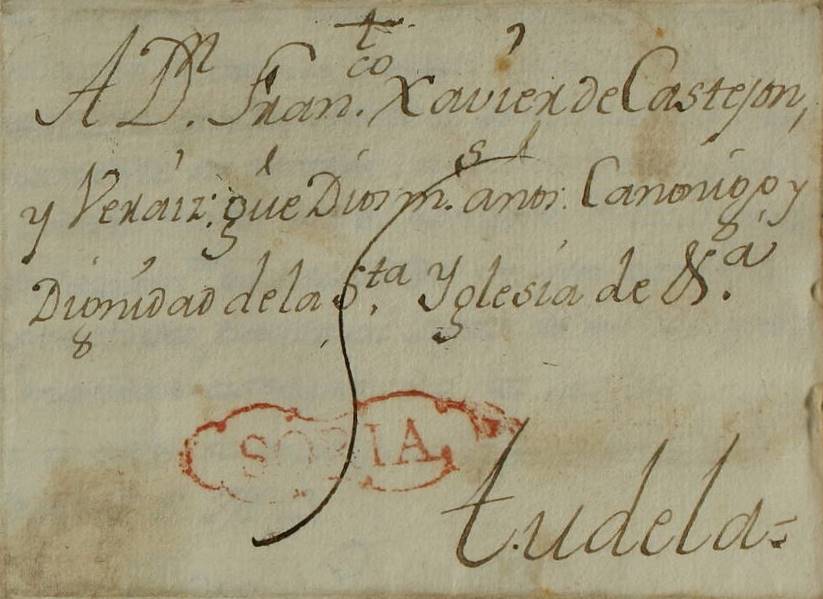 †
A Dⁿ. Franᶜᵒ. Xavier de Castejon,
y Veraiz: que Dios mˢ. años: Canonigo y
Dignidad de la Sᵗᵃ. Yglesia de &ᵃ.
SORIA
tudela=